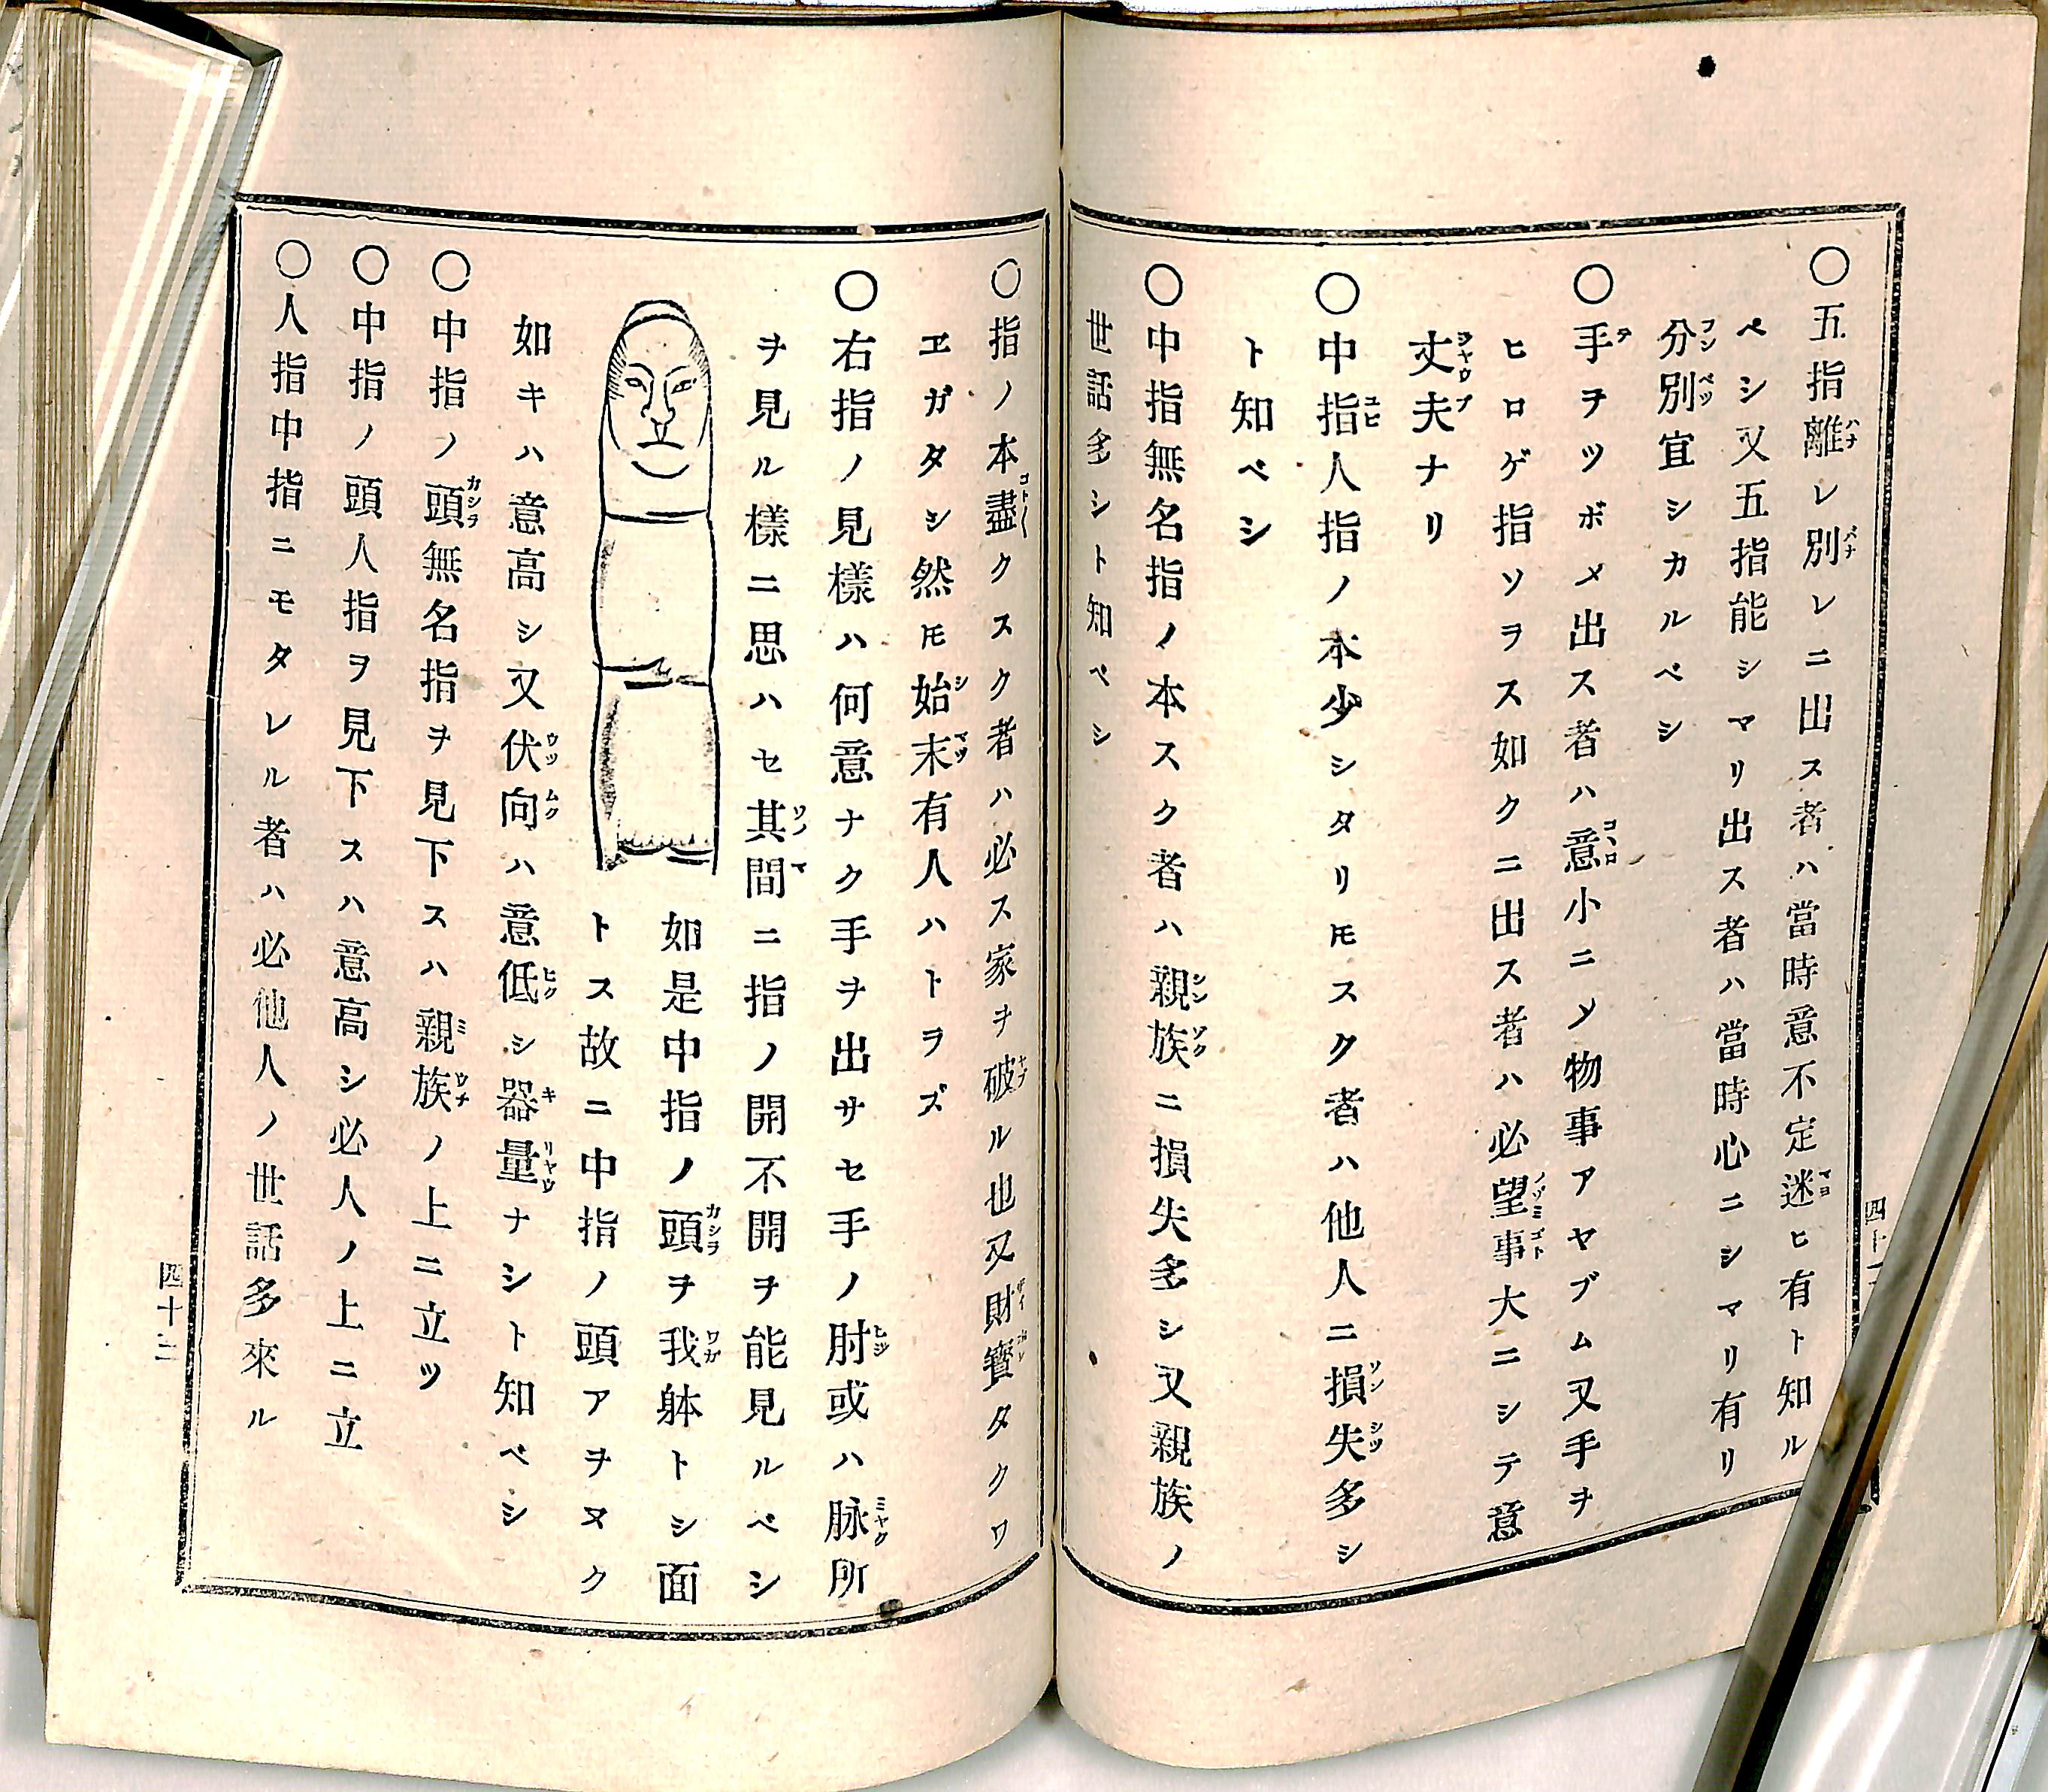 〇五指離レ別レニ出ス者ハ當時意不定迷ヒ有ト知ル
ペシ又五指能シマリ出ス者ハ當時心ニシマリ有リ
分別宜シカルペシ
〇手ヲツボメ出ス者ハ意小ニメ物事アヤブム又手ヲ
ヒロゲ指ソヲス如クニ出ス者ハ必望事大ニシテ意
丈夫ナリ
〇中指人指ノ本少シタリ𪜈スク者ハ他人ニ損失多シ
ト知ベシ
〇中指無名指ノ本スク者ハ親族ニ損失多シ又親族ノ
世話多シト知ベシ
四十
〇指ノ本盡クスク者ハ必ス家ヲ破ル也又財寳タクワ
ヱガタシ然𪜈始末有人ハトラズ
〇右指ノ見樣ハ何意ナク手ヲ出サセ手ノ肘或ハ脉所
ヲ見ル樣ニ思ハセ其間ニ指ノ開不開ヲ能見ルベシ
如是中指ノ頭ヲ我躰トシ面
トス故ニ中指ノ頭アヲヌク
如キハ意高シ又伏向ハ意低シ器量ナシト知ベシ
〇中指ノ頭無名指ヲ見下スハ親族ノ上ニ立ツ
〇中指ノ頭人指ヲ見下スハ意高シ必人ノ上ニ立
〇人指中指ニモタレル者ハ必他人ノ世話多來ル
四十二